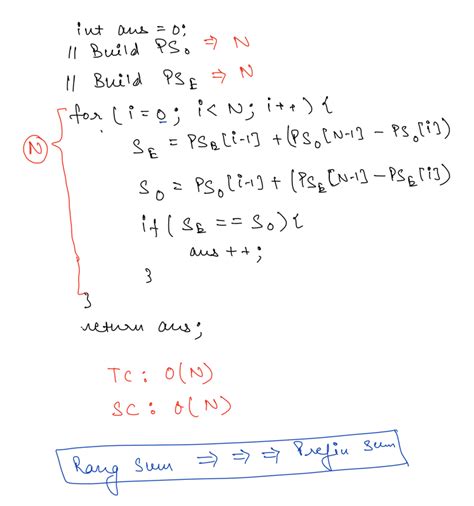 int ans = 0;
// Build PSo ⇒ N
// Build PSE ⇒ N
for (i=0; i<N; i++) {
N
SE = PSE[i-1] + (PSo[N-1] - PSo[i])
So = PSo[i-1] + (PSE[N-1] - PSE[i])
if (SE == So) {
ans ++;
}
}
return ans;
TC: O(N)
SC: O(N)
Rang Sum ⇒ ⇒ ⇒ Prefin Sum